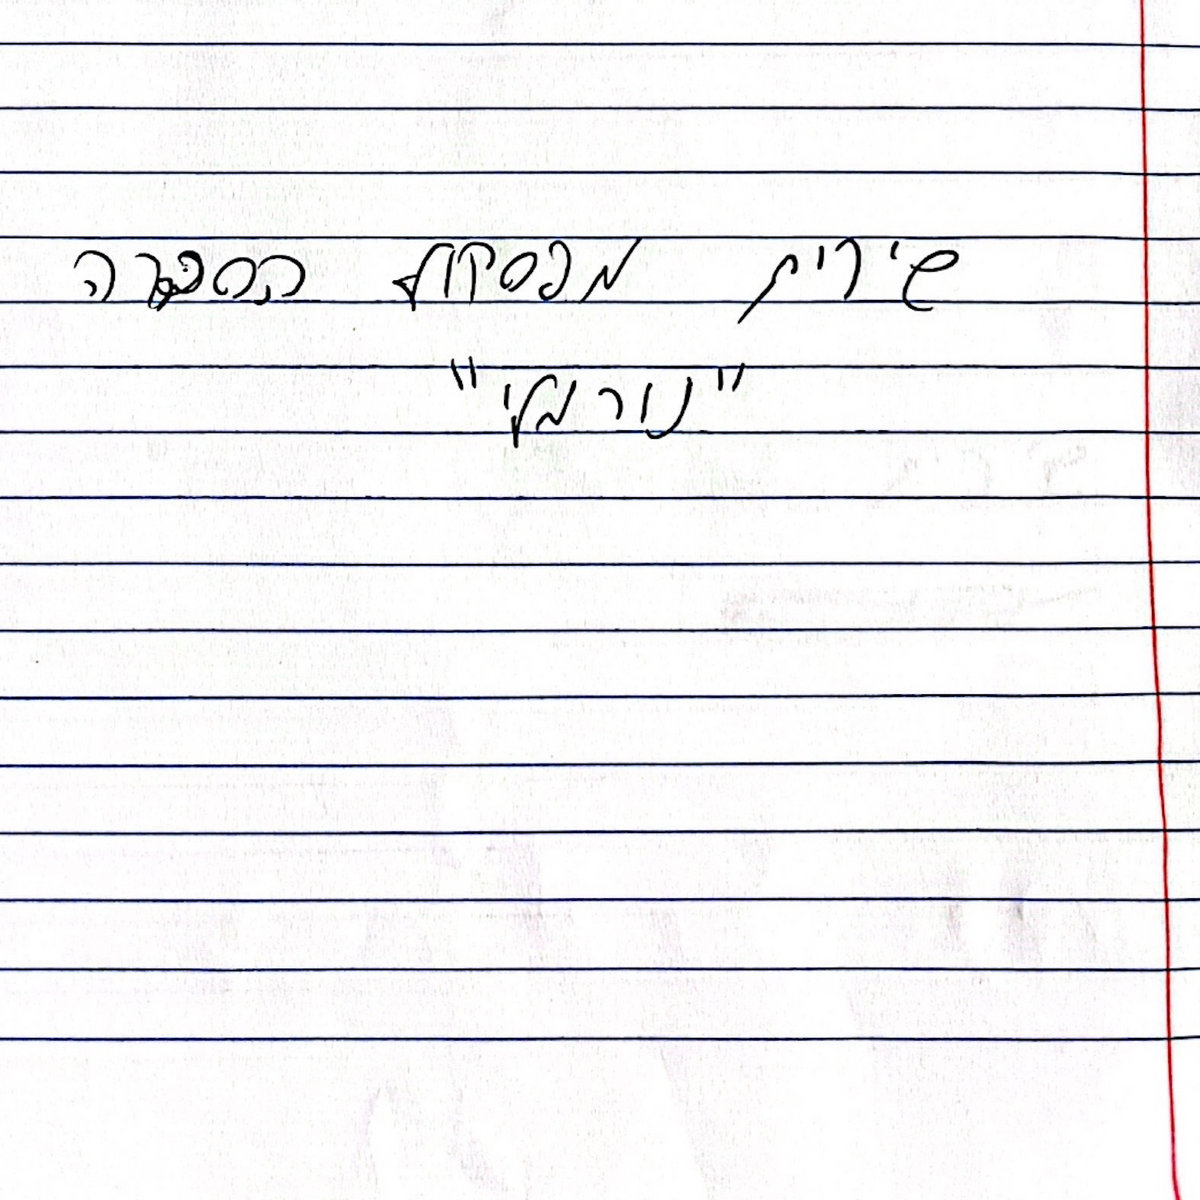 שירים מפסקול הסדרה
"נורמלי"